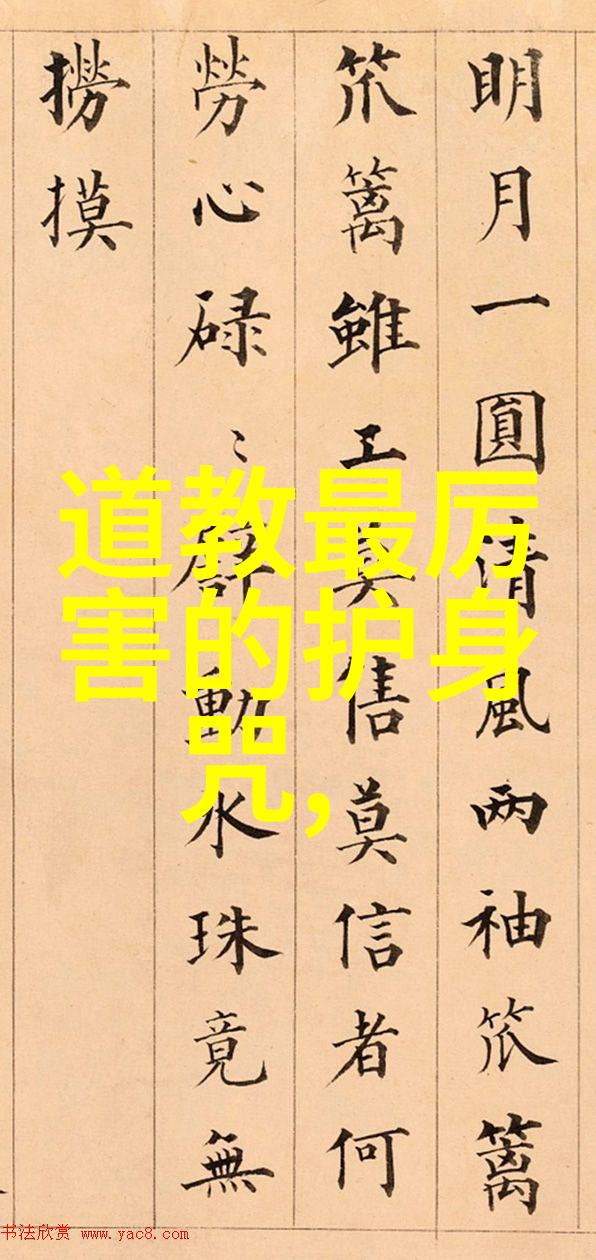 明月一圓清風两袖笊籬
笊籬雖工莫售莫信者何
勞心碌〻躃動水珠竟無
撈摸
道教最厉
害的护身
咒,
书法欣赏 www.yac8.com